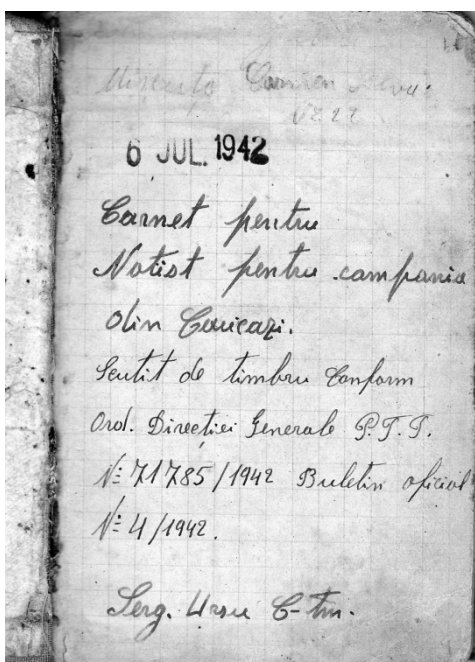 Carmen
6 JUL. 1942
Carnet pentru
Notist pentru campania
din Caucazi.
Scutit de timbru Conform
Ord. Direcției Generale P.T.T.
Nº 71785/1942 Buletin oficial
Nº 4/1942.
Serg. Ursu C-tin.